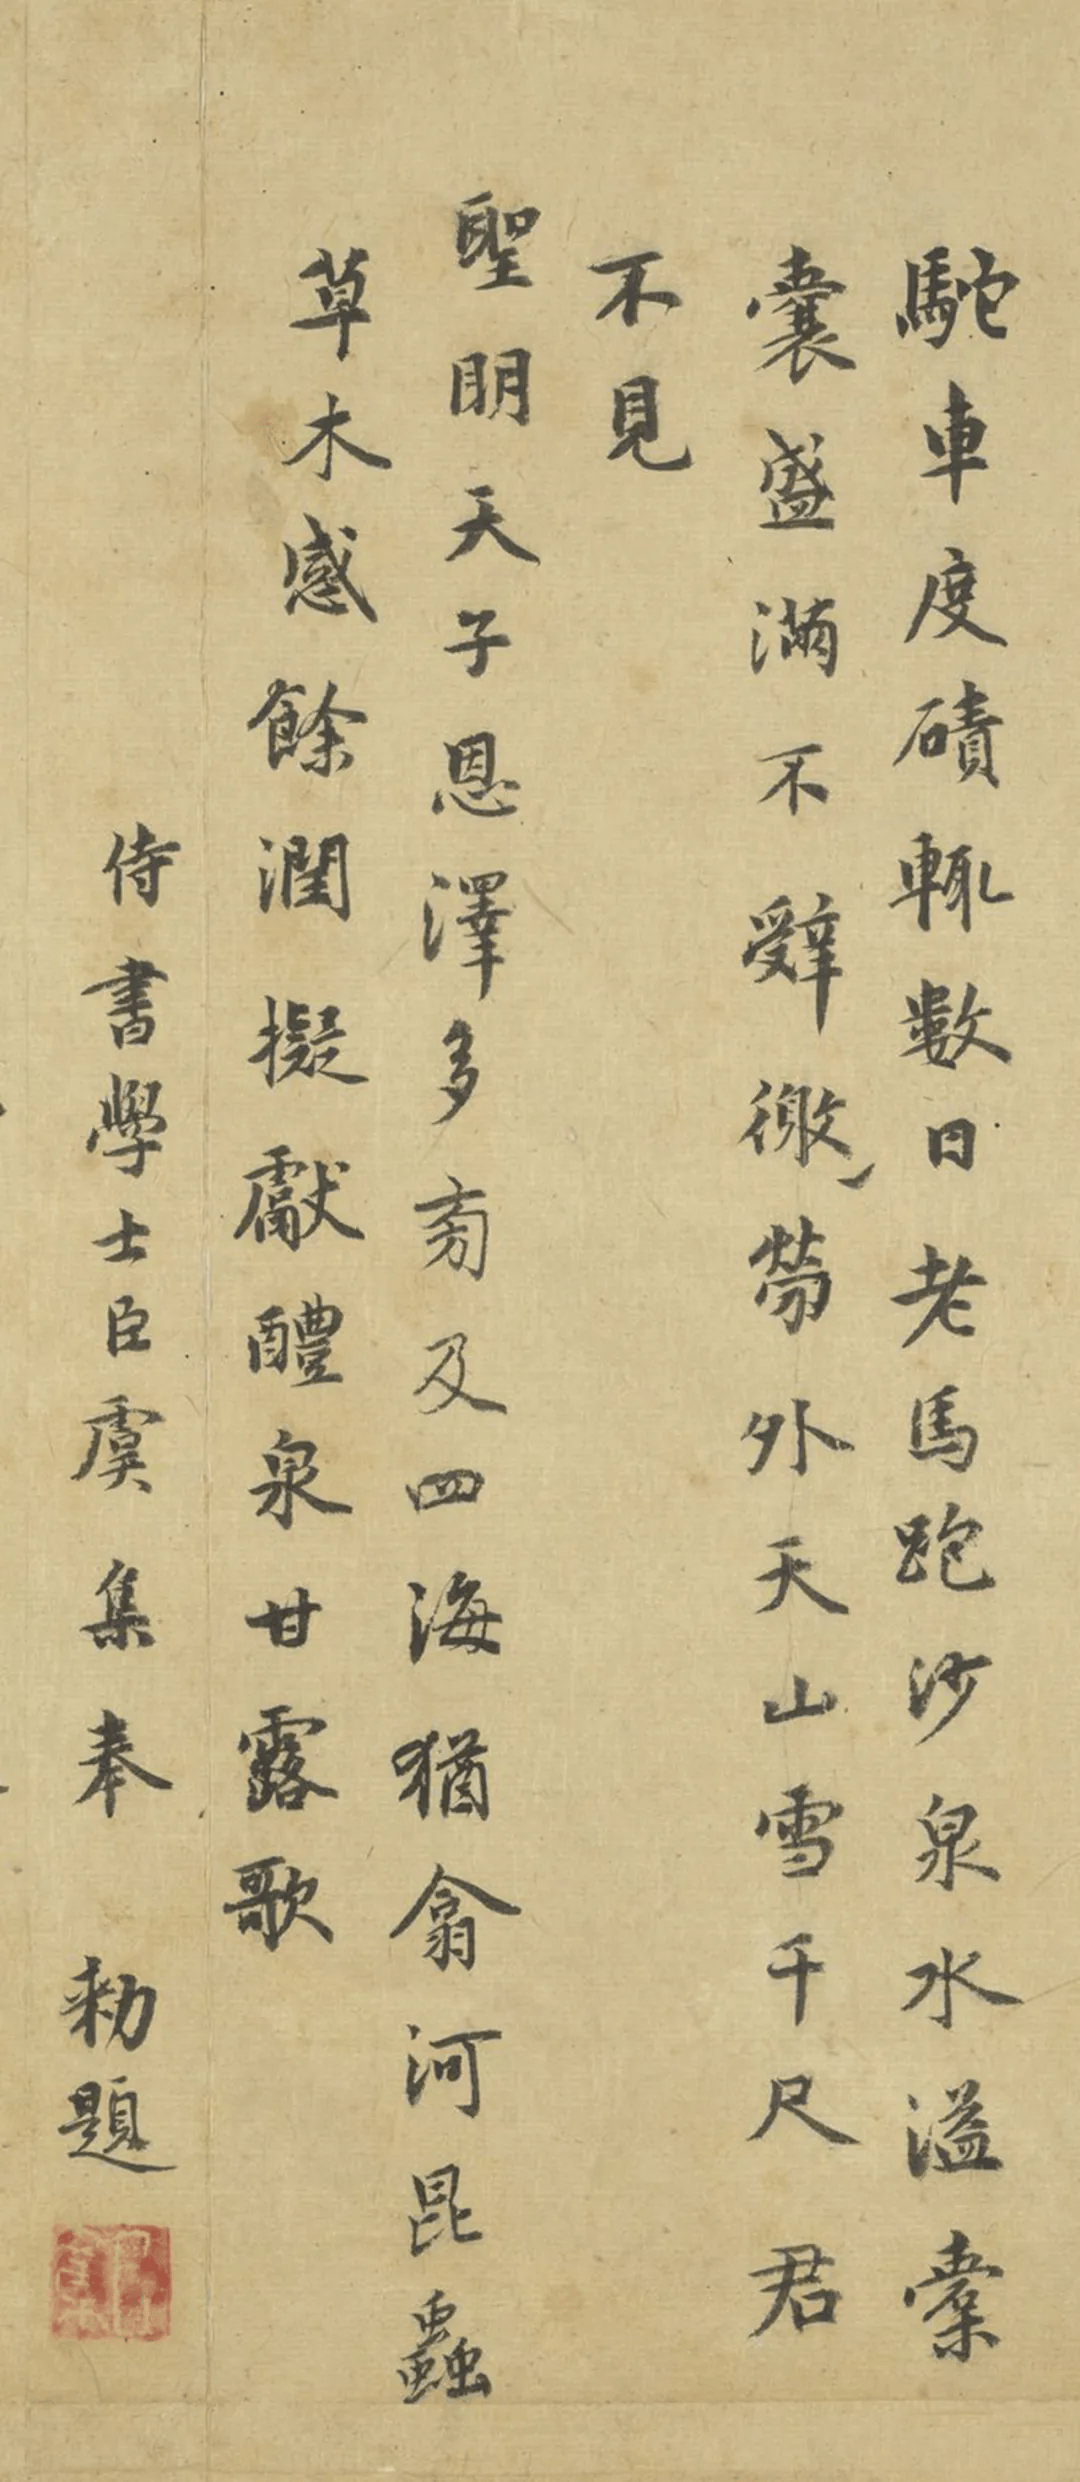 駝車度磧輒數日老馬跑沙泉水溢橐
囊盛滿不辤徼勞外天山雪千尺君
不見
聖明天子恩澤多旁及四海猶翕河昆蟲
草木感餘潤擬獻醴泉甘露歌
侍書學士臣虞集奉勑題